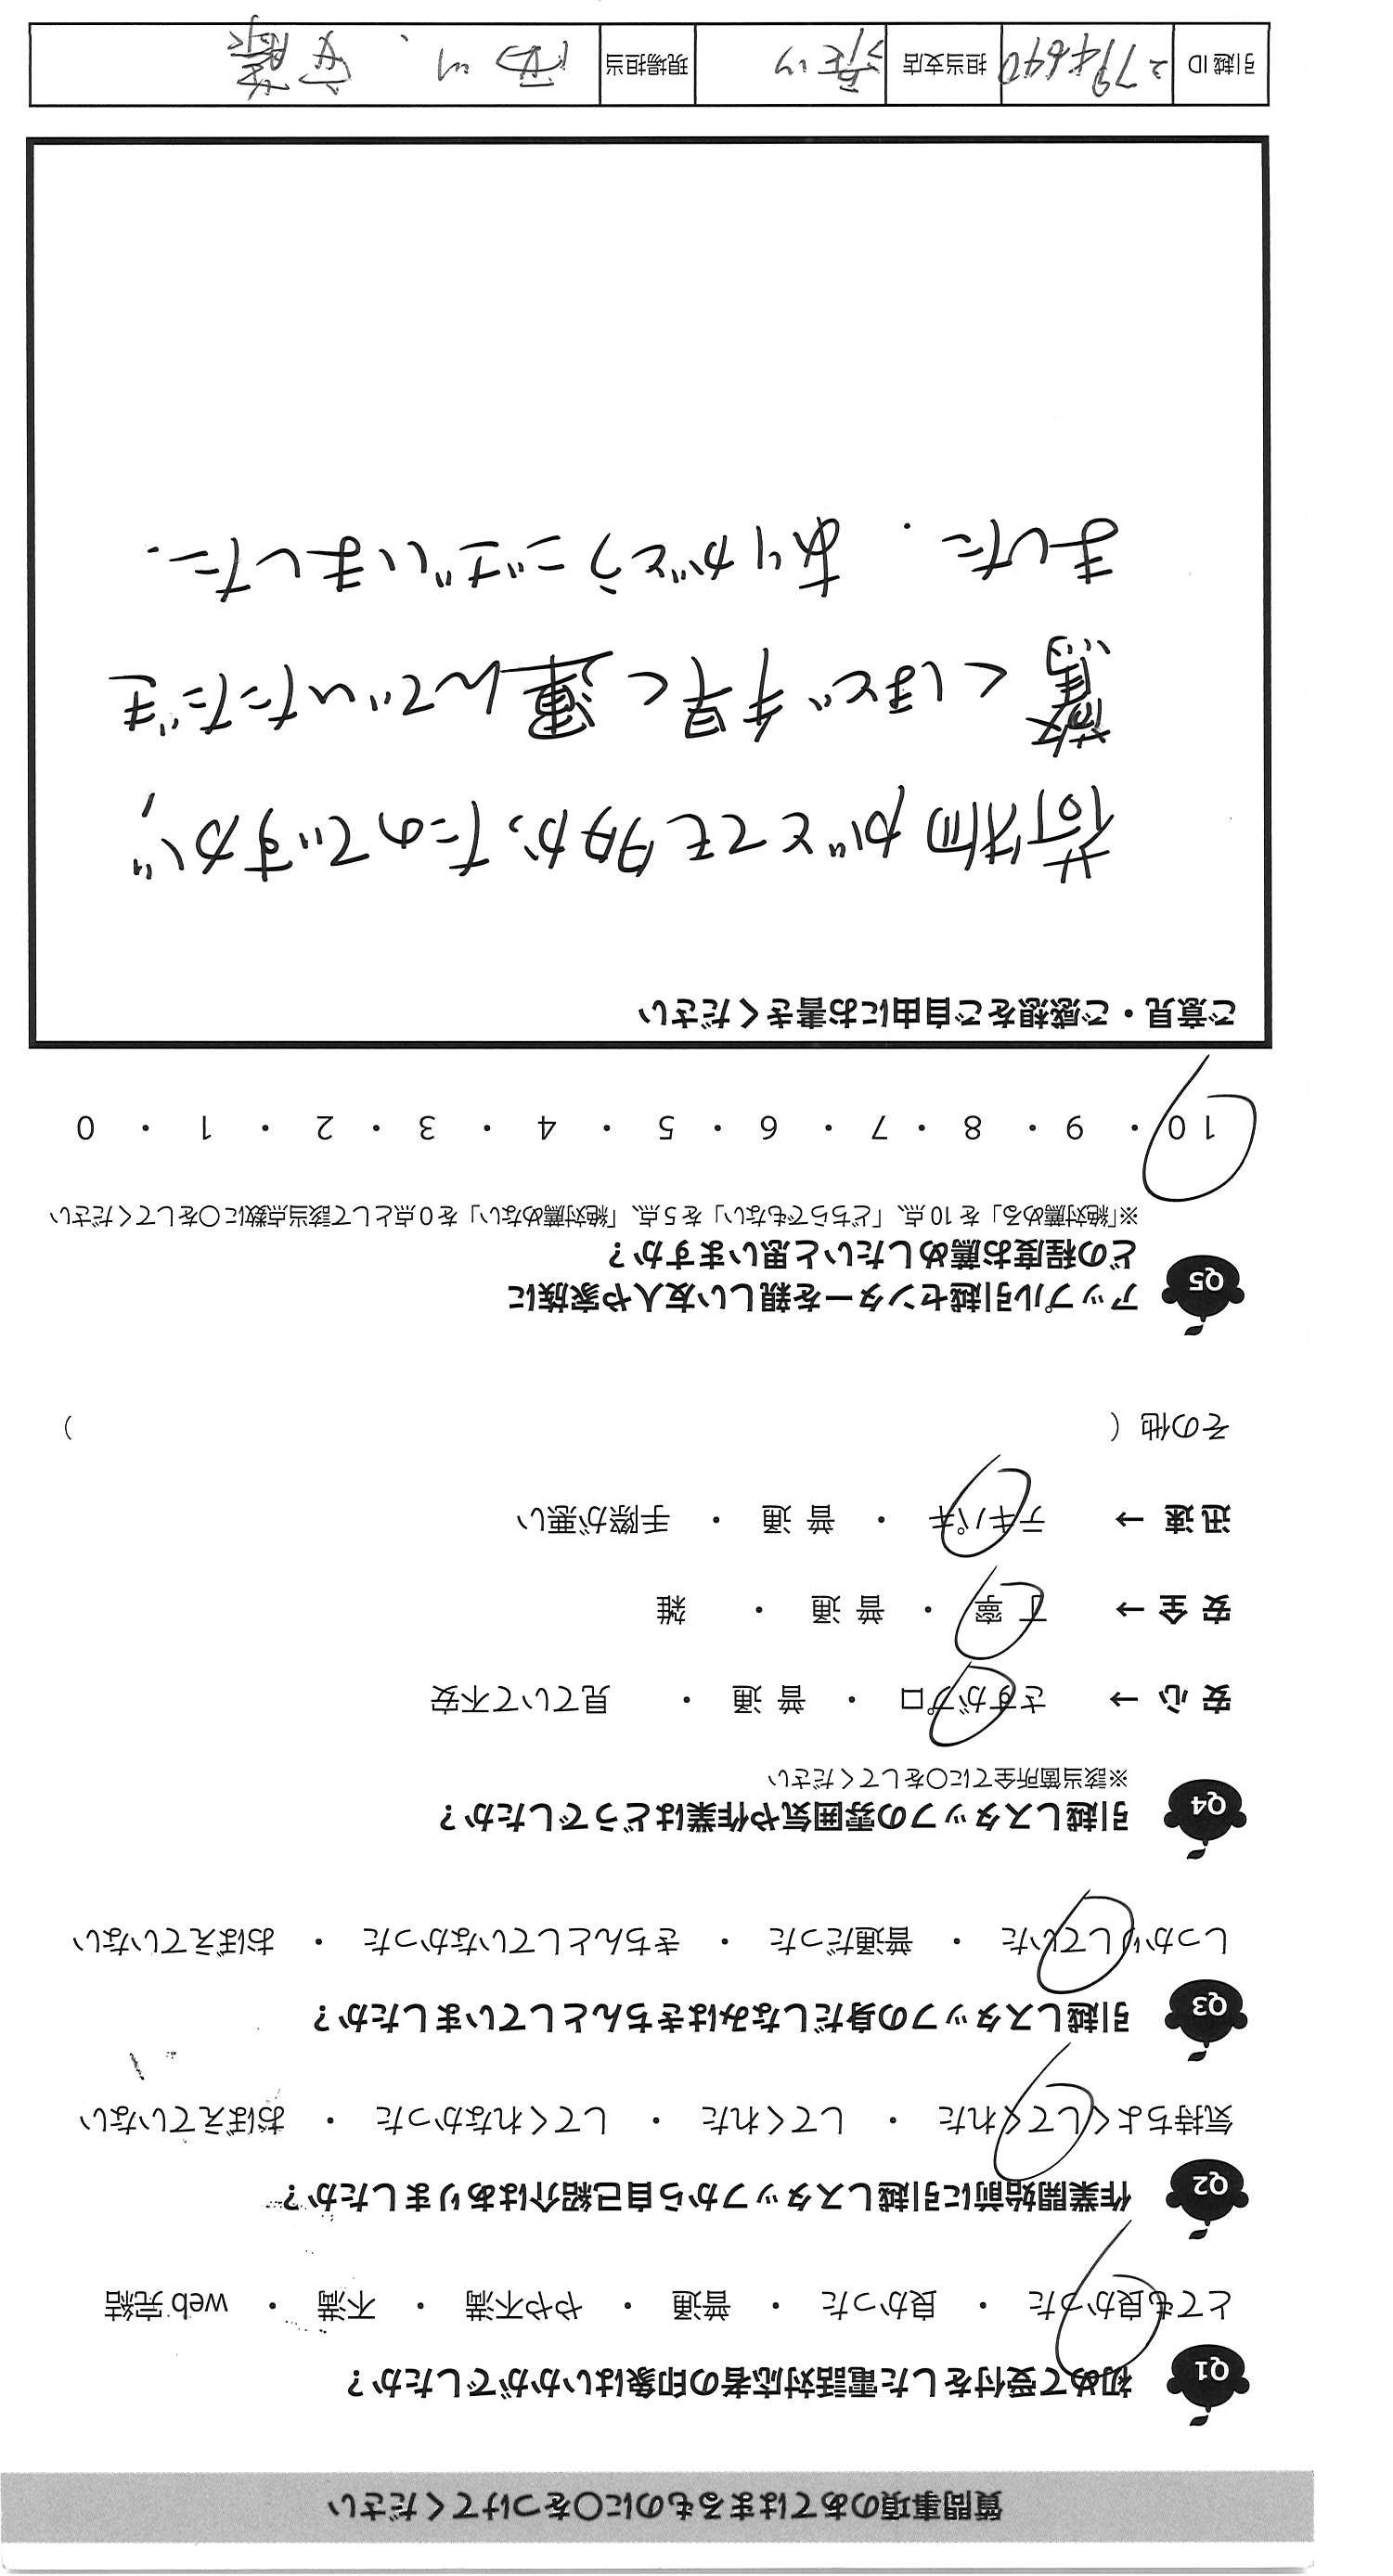 質問事項のあてはまるものに〇をつけてください
Q1 初めて受付をした電話対応者の印象はいかがでしたか？
とても良かった ・ 良かった ・ 普通 ・ やや不満 ・ 不満 ・ web 完結
Q2 作業開始前に引越しスタッフから自己紹介はありましたか？
気持ちよくしてくれた ・ してくれた ・ してくれなかった ・ おぼえていない
Q3 引越しスタッフの身だしなみはきちんとしていましたか？
しっかりしていた ・ 普通だった ・ きちんとしていなかった ・ おぼえていない
Q4 引越しスタッフの雰囲気や作業はどうでしたか？
※該当箇所全てに〇をしてください
安心 → さすがプロ ・ 普通 ・ 見ていて不安
安全 → 丁寧 ・ 普通 ・ 雑
迅速 → テキパキ ・ 普通 ・ 手際が悪い
その他（ ）
Q5 アップル引越センターを親しい友人や家族に
どの程度お薦めしたいと思いますか？
※「絶対薦める」を 10 点、「どちらでもない」を 5 点、「絶対薦めない」を 0 点として該当点数に〇をしてください
10 ・ 9 ・ 8 ・ 7 ・ 6 ・ 5 ・ 4 ・ 3 ・ 2 ・ 1 ・ 0
ご意見・ご感想をご自由にお書きください
荷物がとても多かったのですが、
驚くほど手早く運んでいただき
ました. ありがとうございました.
引越 ID 担当支店 現場担当